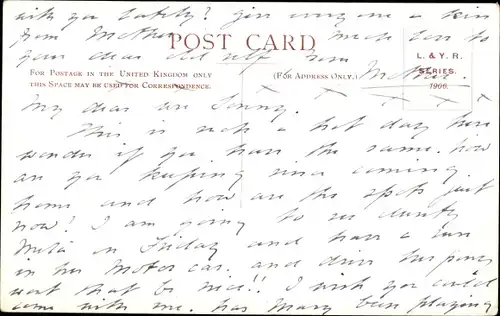 with you lately? give everyone a kiss
from Mother much love to
your dear old self from
Mother
POST CARD
FOR POSTAGE IN THE UNITED KINGDOM ONLY
THIS SPACE MAY BE USED FOR CORRESPONDENCE.
(FOR ADDRESS ONLY.)
L. & Y. R.
SERIES.
1906.
My dear wee Jenny.
This is such a hot day here
wonder if you have the same. how
are you keeping since coming
home and how are the spots just
now? I am going to see aunty
on Friday and have a run
in her Motor car. and drive her pony
wont that be nice!! I wish you could
come with me. has Mary been playing